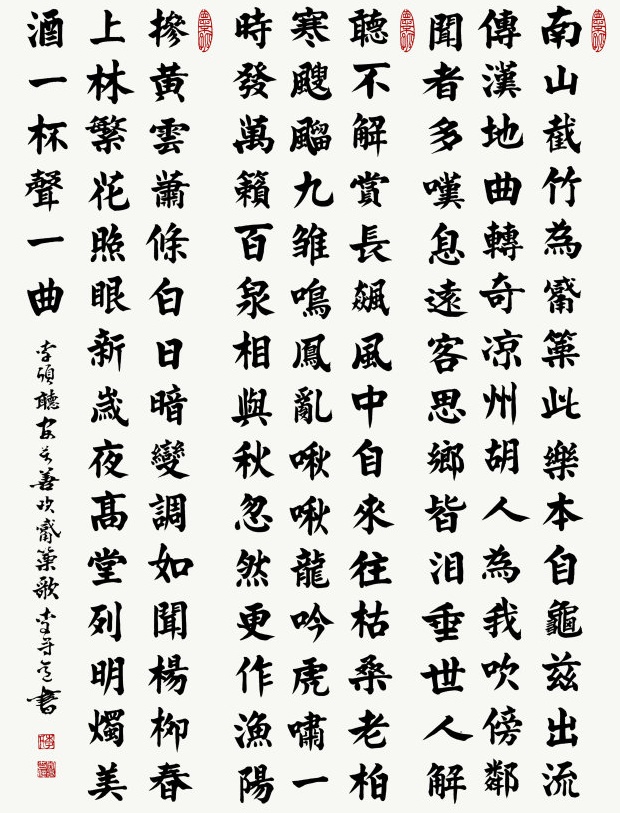 南山截竹為觱篥此樂本自龜兹出流
傳漢地曲轉奇凉州胡人為我吹傍鄰
聞者多嘆息遠客思鄉皆泪垂世人解
聽不解賞長飆風中自來往枯桑老柏
寒颼飀九雏鳴鳳亂啾啾龍吟虎嘯一
時發萬籟百泉相與秋忽然更作漁陽
摻黃雲蕭條白日暗變調如聞楊柳春
上林繁花照眼新歲夜髙堂列明燭美
酒一杯聲一曲
李頎聽安万善吹觱篥歌 李書